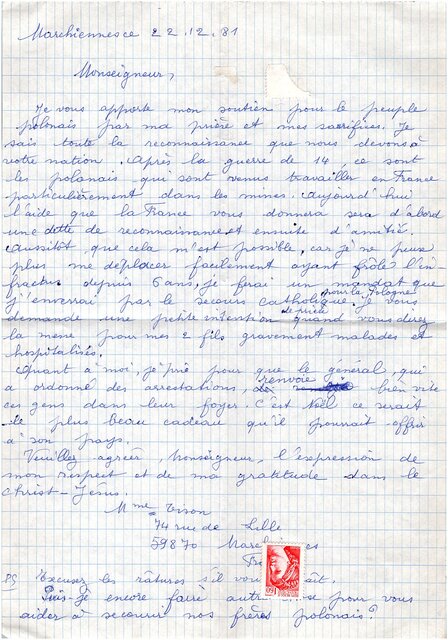 Marchiennes ce 22.12.81
Monseigneur,
Je vous apporte mon soutien pour le peuple
polonais par ma prière et mes sacrifices. Je
sais toute la reconnaissance que nous devons à
votre nation. Après la guerre de 14, ce sont
les polonais qui sont venus travailler en France
particulièrement dans les mines. Aujourd'hui
l'aide que la France vous donnera sera d'abord
une dette de reconnaissance et ensuite d'amitié.
Aussitôt que cela m'est possible, car je ne peux
plus me déplacer facilement ayant frôlé l'in
farctus depuis 6 ans, je ferai un mandat que
j'enverrai par le secours catholique pour la Pologne. Je vous
demande une petite intention de prière quand vous direz
la messe pour mes 2 fils gravement malades et
hospitalisés.
Quant à moi, je prie pour que le général, qui
a ordonné des arrestations, renvoie bien vite
ces gens dans leur foyer. C'est Noël ce serait
le plus beau cadeau qu'il pourrait offrir
à son pays.
Veuillez agréer, Monseigneur, l'expression de
mon respect et de ma gratitude dans le
Christ-Jésus.
Mme
74 rue de Lille
59870
PS Excusez les ratures s'il
Puis-je encore faire pour vous
aider à secourir nos frères polonais?